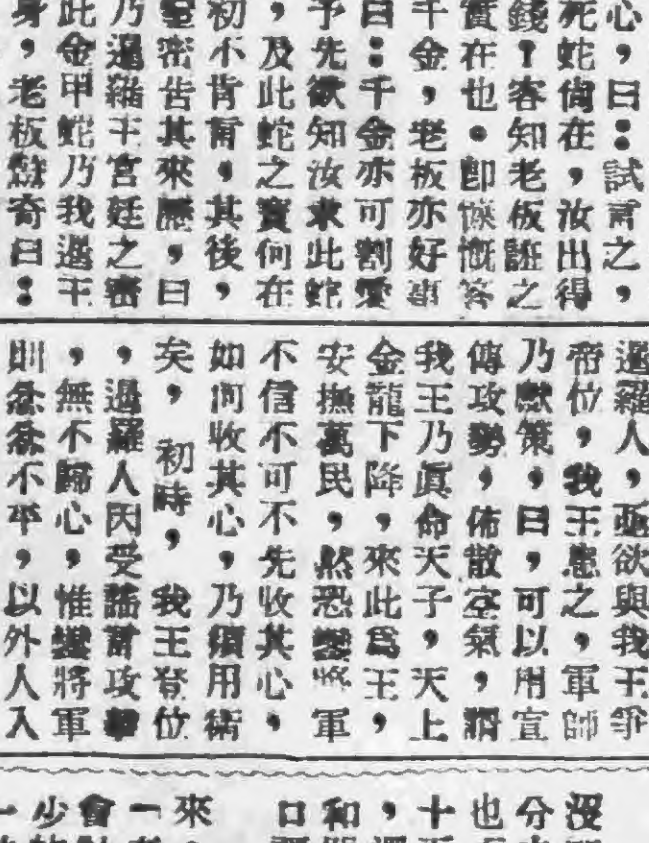 心，曰：試言之，
死蛇倘在，汝出得
錢？客知老板誑之
實在也。卽慷慨答
千金，老板亦好事
曰：千金亦可割愛
予先欲知汝求此蛇
，及此蛇之寶何在
初不肯言，其後，
密告其來歷，曰
乃暹羅王宮廷之密
此金甲蛇乃我暹王
身，老板驚奇曰：
暹羅人，亟欲與我王爭
帝位，我王患之，軍師
乃獻策，曰，可以用宣
傳攻勢，佈散空氣，謂
我王乃眞命天子，天上
金龍下降，來此爲王，
安撫萬民，然恐鑾將軍
不信不可不先收其心，
如何收其心，乃須用術
矣，初時，我王登位
，暹羅人因受謠言攻擊
，無不歸心，惟鑾將軍
則忿忿不平，以外人入
沒
分
也
十
，
和
口
來
一
會
少
一